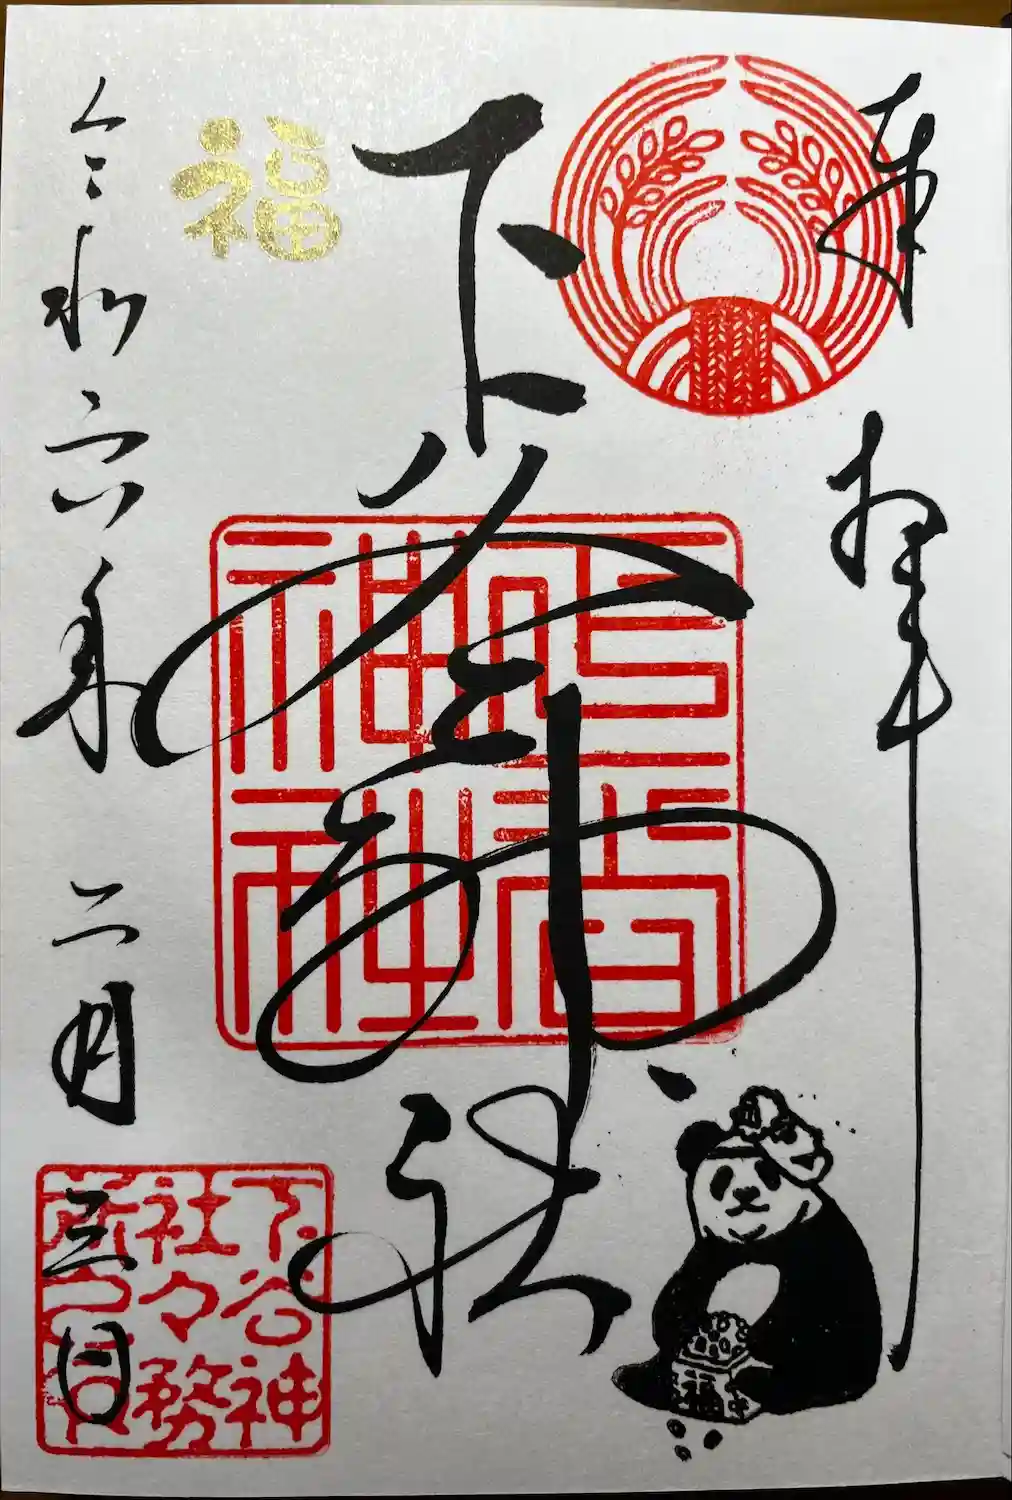 奉拝
下谷神社
下谷神社
福
令和六年二月三日
下谷神
社々務
所之印
福